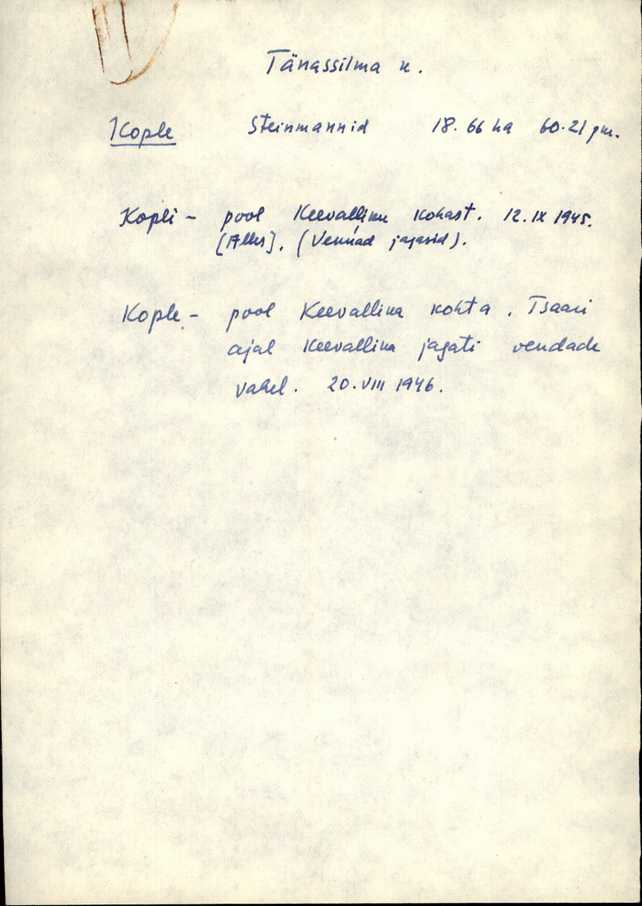 Tänassilma k.
Kople Steinmannid 18.66 ha 60.21 pm.
Kopli - pool Keevallinu kohast. 12.IX 1945.
(Vennad jagasid).
Kople - pool Keevallina kohta. Tsaari
ajal Keevallina jagati vendade
vahel. 20.VIII 1946.